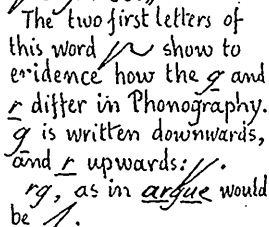 The two first letters of
this word show to
evidence how the g and
r differ in Phonography.
g is written downwards,
and r upwards: .
rg, as in argue would
be .